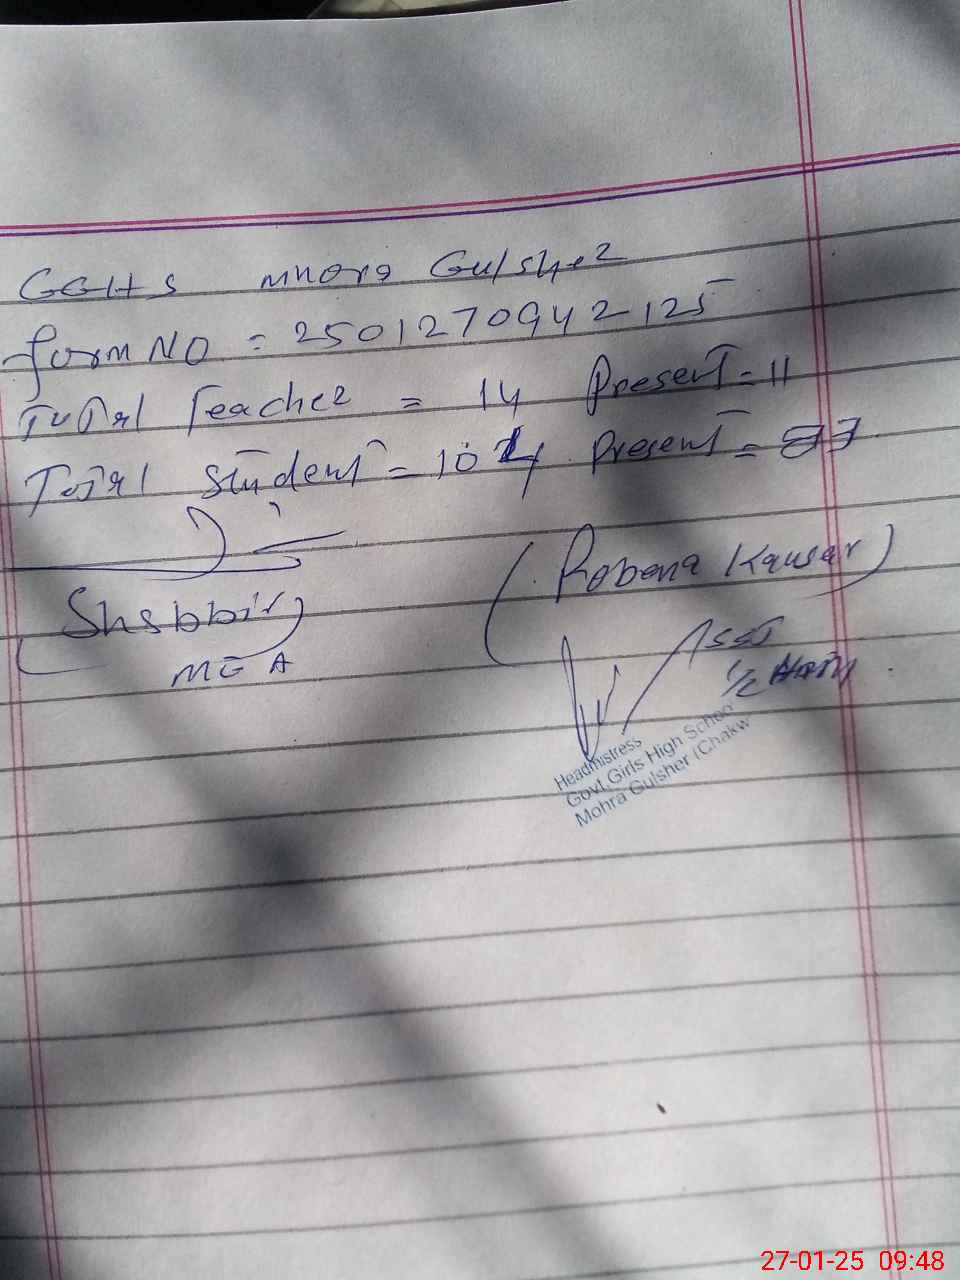 GGHS mhora Gulsher
form NO = 2501270942125
Total Teacher = 14 Present = 11
Total student = 104 Present = 87
(Robena Kausar)
(Shabbir)
MEA
Asst
Headmistress
Govt. Girls High School
Mohra Gulsher (Chakw
27-01-25 09:48